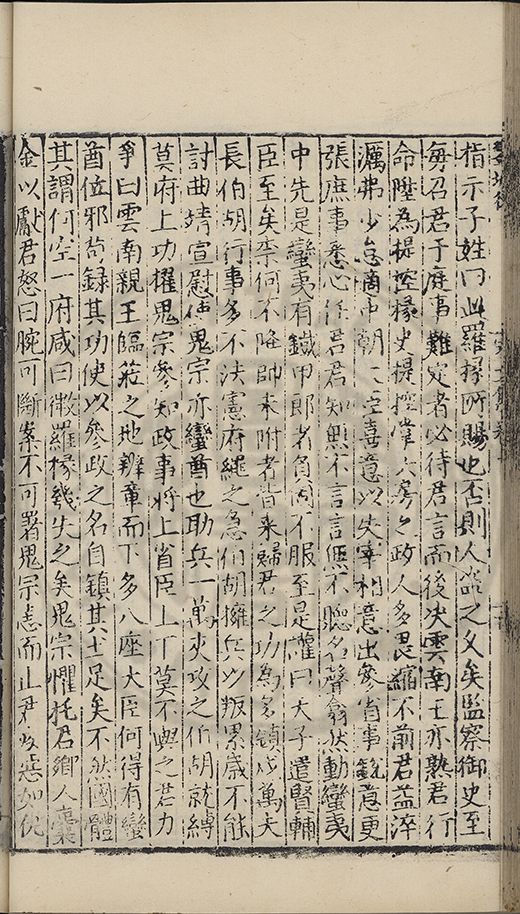 指示子姓曰此羅掾所賜也否則人盗之父矣監察御史至
毎召君于庭事難定者必待君言而後决雲南王亦熟君行
命陞為提控掾史提控掌六房之政人多畏縮不前君益淬
濿弗少怠適中朝
喜意以失宰相意出參省事銳意更
張庶事悉心任君君知無不言言無不聽名聲翕然動蠻夷
中先是蠻夷有鐵甲郎者負固不服至是讙曰天子遣賢輔
臣至矣柰何不降帥衆附者皆來歸君之功為多鎮戍萬夫
長伯胡行事多不法憲府繩之急伯胡擁兵以叛累歳不能
討曲靖宣慰使鬼宗亦蠻酋也助兵一萬夾攻之伯胡就縛
莫府上功擢鬼宗參知政事将上省臣上下莫不與之君力
爭曰雲南親王臨莅之地辨章而下多八座大臣何得有蠻
酋位邪苟録其功使以參政之名自鎮其土足矣不然國體
其謂何空一府咸曰微羅掾幾失之矣鬼宗懼托君鄉人橐
金以獻君怒曰腕可斷案不可署鬼宗恚而止君
惡如仇